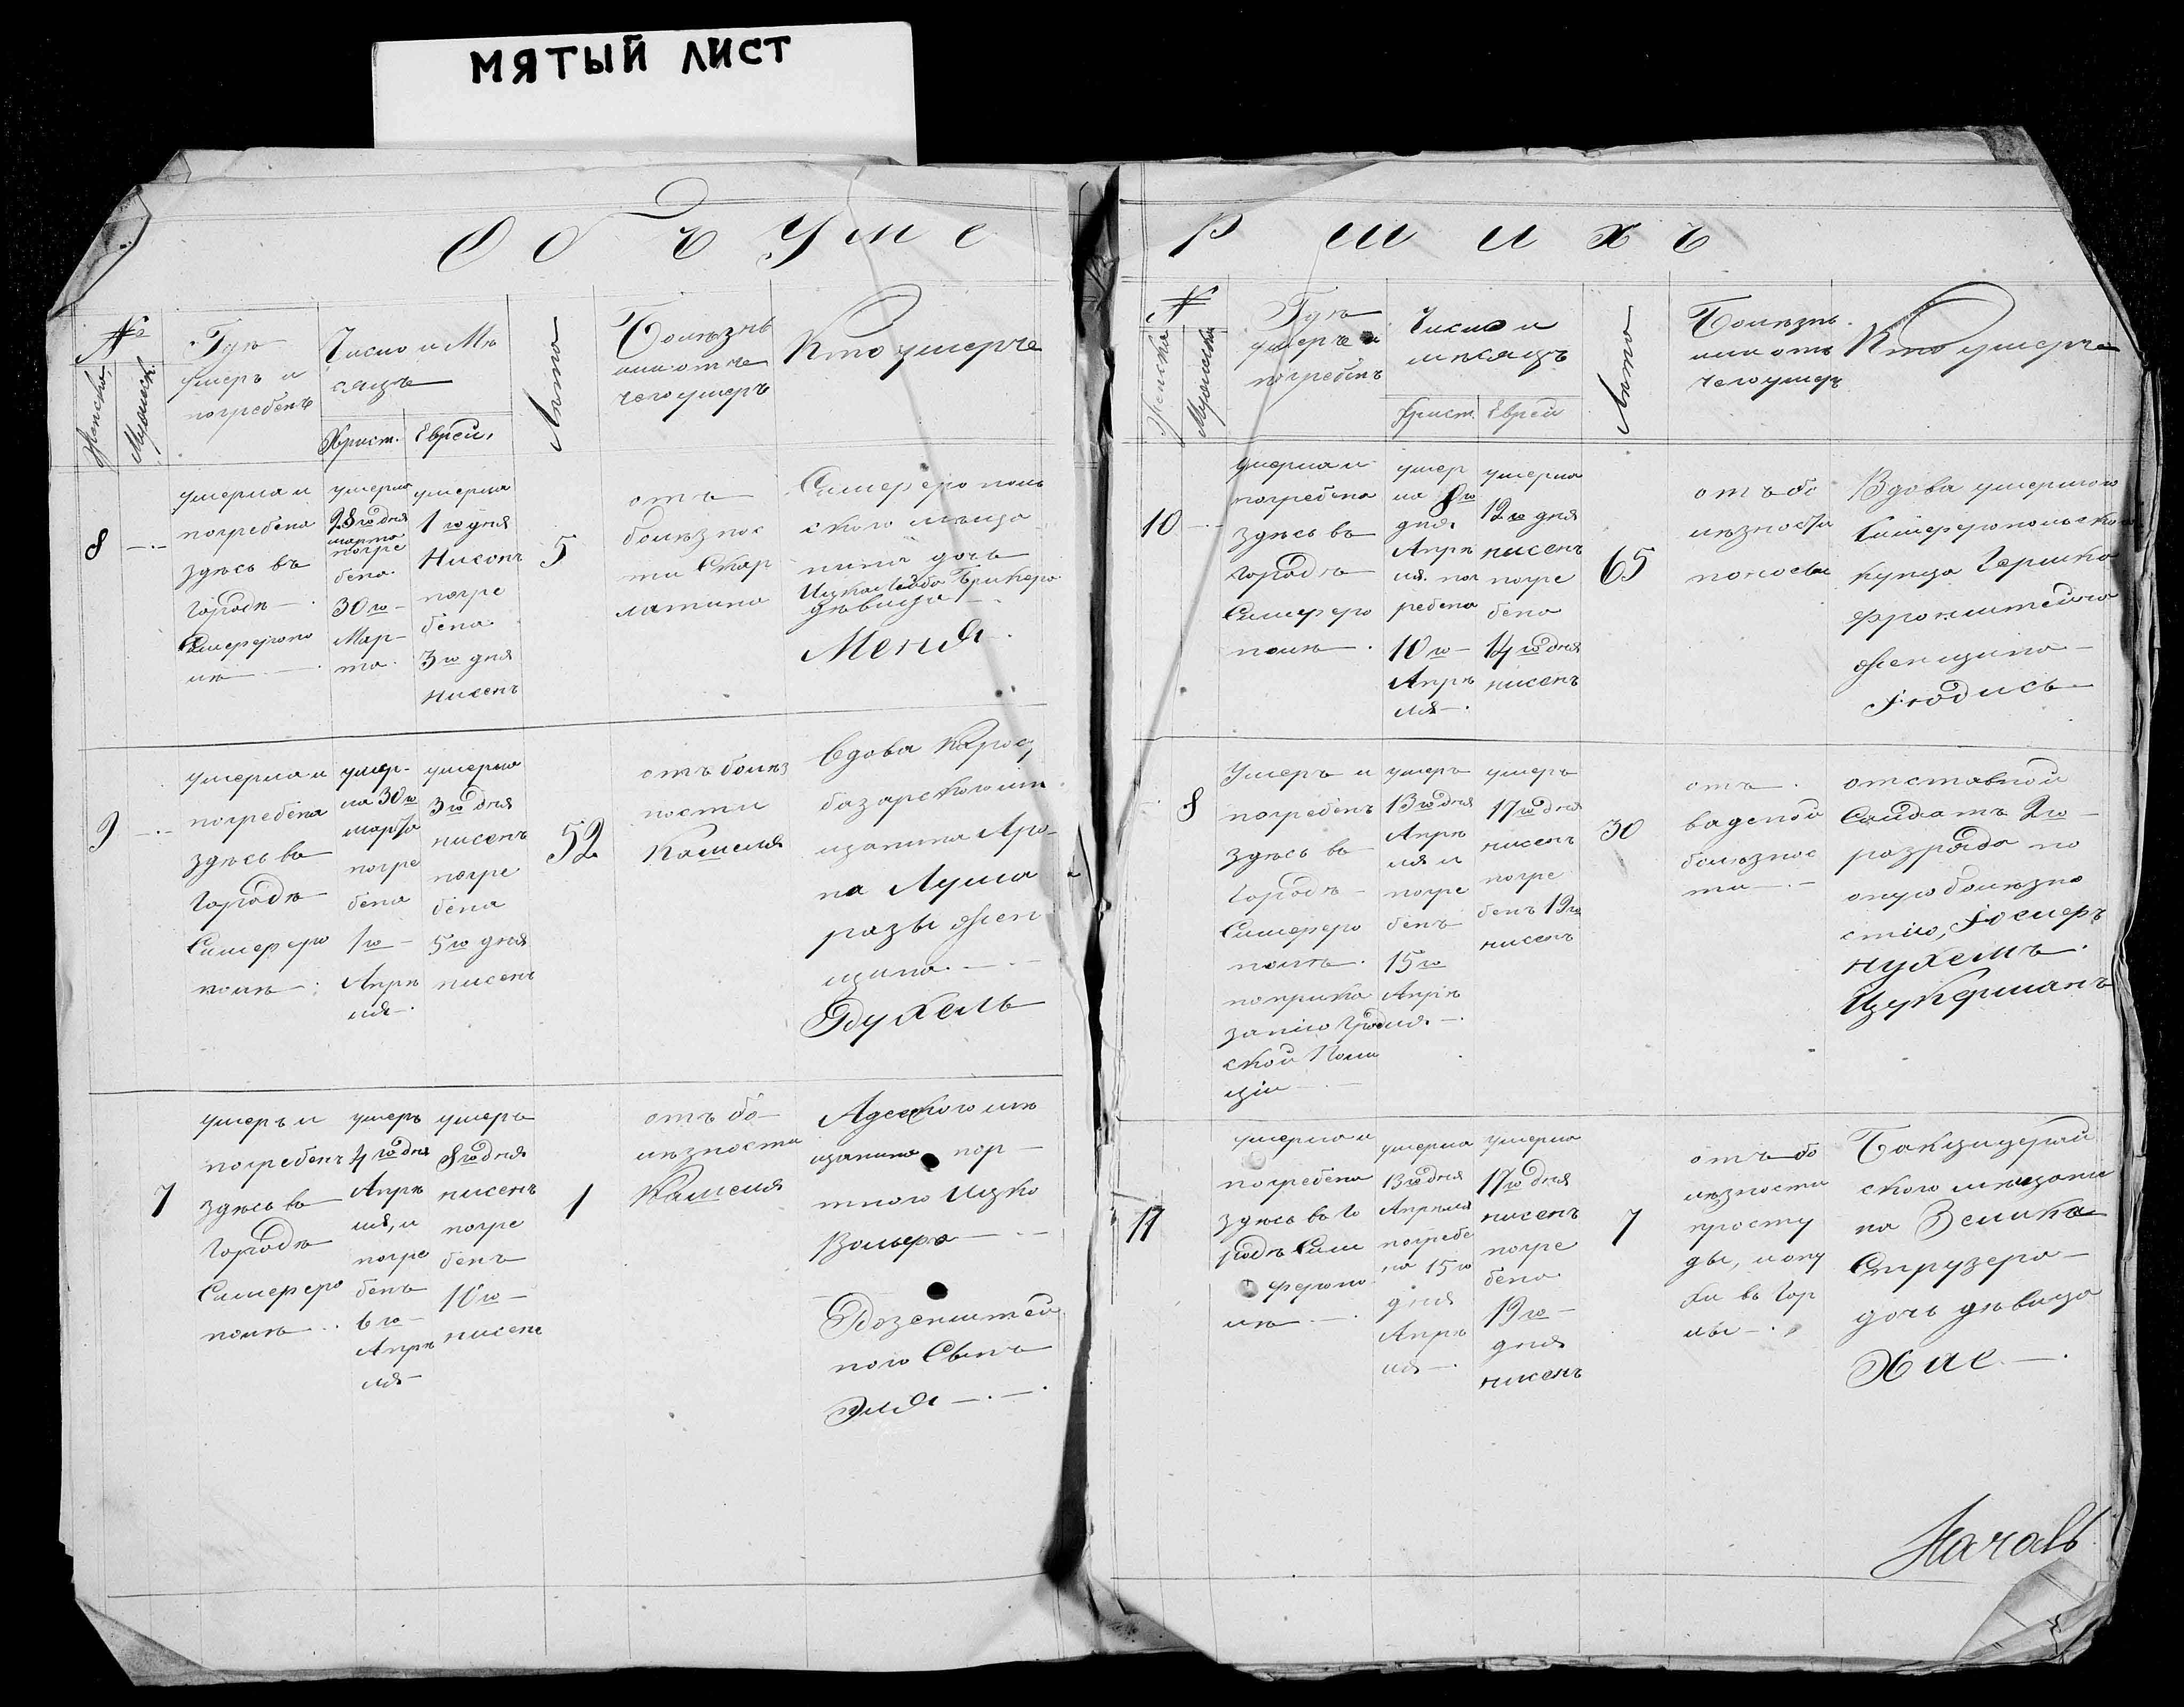 МЯТЫЙ ЛИСТ
Объ уме
№
Женска.
Мужеск.
Гдѣ
умеръ и
погребенъ
Число и Мѣ
сяцъ
Христ.
Еврей.
Лѣта
Болѣзнь
или отъ
чего умеръ
Кто умерче
8
умерла и
погребена
здѣсь въ
городѣ
Симферопо
лѣ
умерла
28го дня
марта
погре
бена
30го
Мар
та
умерла
1го дня
Нисенъ
погре
бена
3го дня
нисенъ
5
отъ
болѣзнос
ти Скар
латина
Симферополь
скаго мѣща
нина дочь
дѣвица
Меня
9
умерла и
погребена
здѣсь въ
городѣ
Симферо
полѣ
умер
ла 30го
марта
погре
бена
1го
Апрѣ
ля
умерла
3го дня
нисенъ
погре
бена
5го дня
нисенъ
52
отъ болѣз
ности
Кашеля
Вдова Карас
базарскаго мѣ
щанина Аро
на
жен
щина
Рухель
7
умеръ и
погребенъ
здѣсь въ
городѣ
Симферо
полѣ
умеръ
4го дня
Апрѣ
ля, и
погре
бенъ
6го
Апрѣ
ля
умеръ
8го дня
нисенъ
погре
бенъ
10го
нисенъ
1
отъ бо
лѣзности
Кашеля
Адескаго мѣ
щанина пор
тнаго Ицка
Вольфа
Розенштей
наго Сынъ
Эля
ршихъ
№
Женска
Мужеска
Гдѣ
умеръ и
погребенъ
Число и
мѣсяцъ
Христ.
Еврей
Лѣта
Болѣзнь
или отъ
чего умеръ
Кто умерче
10
умерла и
погребена
здѣсь въ
городѣ
Симферо
полѣ
умер
ла 8го
дня
Апрѣ
ля пог
ребена
10го
Апрѣ
ля
умерла
12го дня
нисенъ
погре
бена
14го дня
нисенъ
65
отъ бо
лѣзности
поносы
Вдова умершаго
Симферопольскаго
купца Гершка
Фронштейна
женщина
Юдись
8
Умеръ и
погребенъ
здѣсь въ
городѣ
Симферо
полѣ
по прика
занію Город
ской Поли
ціи
умеръ
13го дня
Апрѣ
ля и
погре
бенъ
15го
Апрѣ
ля
умеръ
17го дня
нисенъ
погре
бенъ 19го
нисенъ
30
отъ
вадяной
болѣзнос
ти
отставной
Салдатъ 2го
разряда по
оную болѣзно
стію,
нухемъ
Цукерманъ
11
умерла и
погребена
здѣсь въ Го
родѣ Сим
феропо
лѣ
умерла
13го дня
Апрѣля
погребе
на 15го
дня
Апрѣ
ля
умерла
17го дня
нисенъ
погре
бена
19го
дня
нисенъ
7
отъ бо
лѣзности
просту
ды, и опу
хи въ Гор
лы
скаго мѣщани
на Зелика
Струзера
дочь дѣвица
Хае